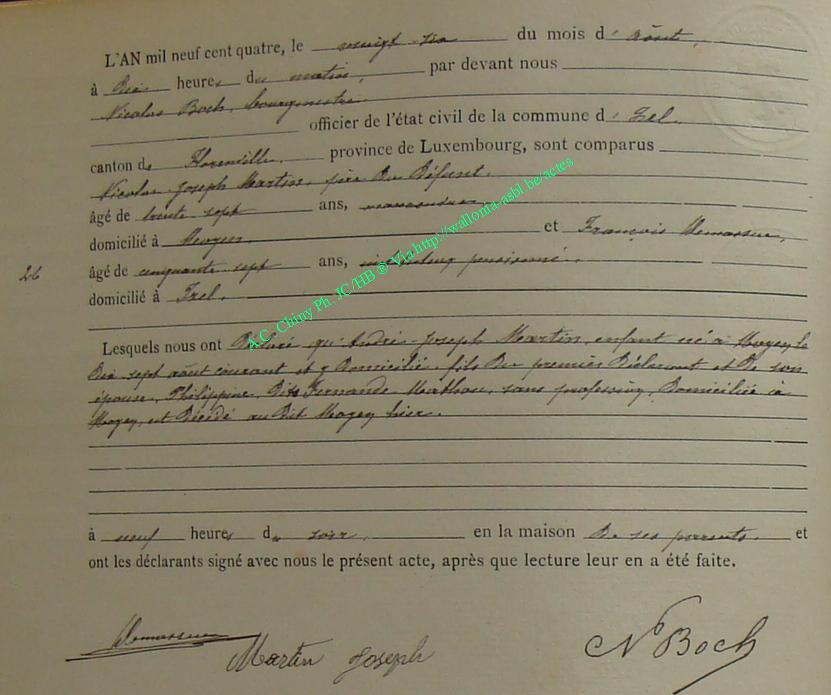 L'AN mil neuf cent quatre, le vingt-six du mois d'août,
à dix heures du matin, par devant nous
Nicolas Boch, bourgmestre
officier de l'état civil de la commune d'Izel,
canton de Florenville, province de Luxembourg, sont comparus
Nicolas-Joseph Martin, père du défunt,
âgé de trente sept ans, manoeuvre
domicilié à Moyen, et François Demasseur,
26
âgé de cinquante sept ans, pensionné,
domicilié à Izel,
Lesquels nous ont déclaré qu'André-Joseph Martin, enfant né à Moyen le
dix sept août courant et y domicilié, fils du premier déclarant et de son
épouse, Philippine, dite Fernande Mathou, sans profession, domiciliée à
Moyen, est décédé au dit Moyen hier,
à neuf heures du soir, en la maison de ses parents, et
ont les déclarants signé avec nous le présent acte, après que lecture leur en a été faite.
Martin Joseph
N Boch
A.C. Chiny Ph. JC/HB ® Via http://wallonia-asbl.be/actes